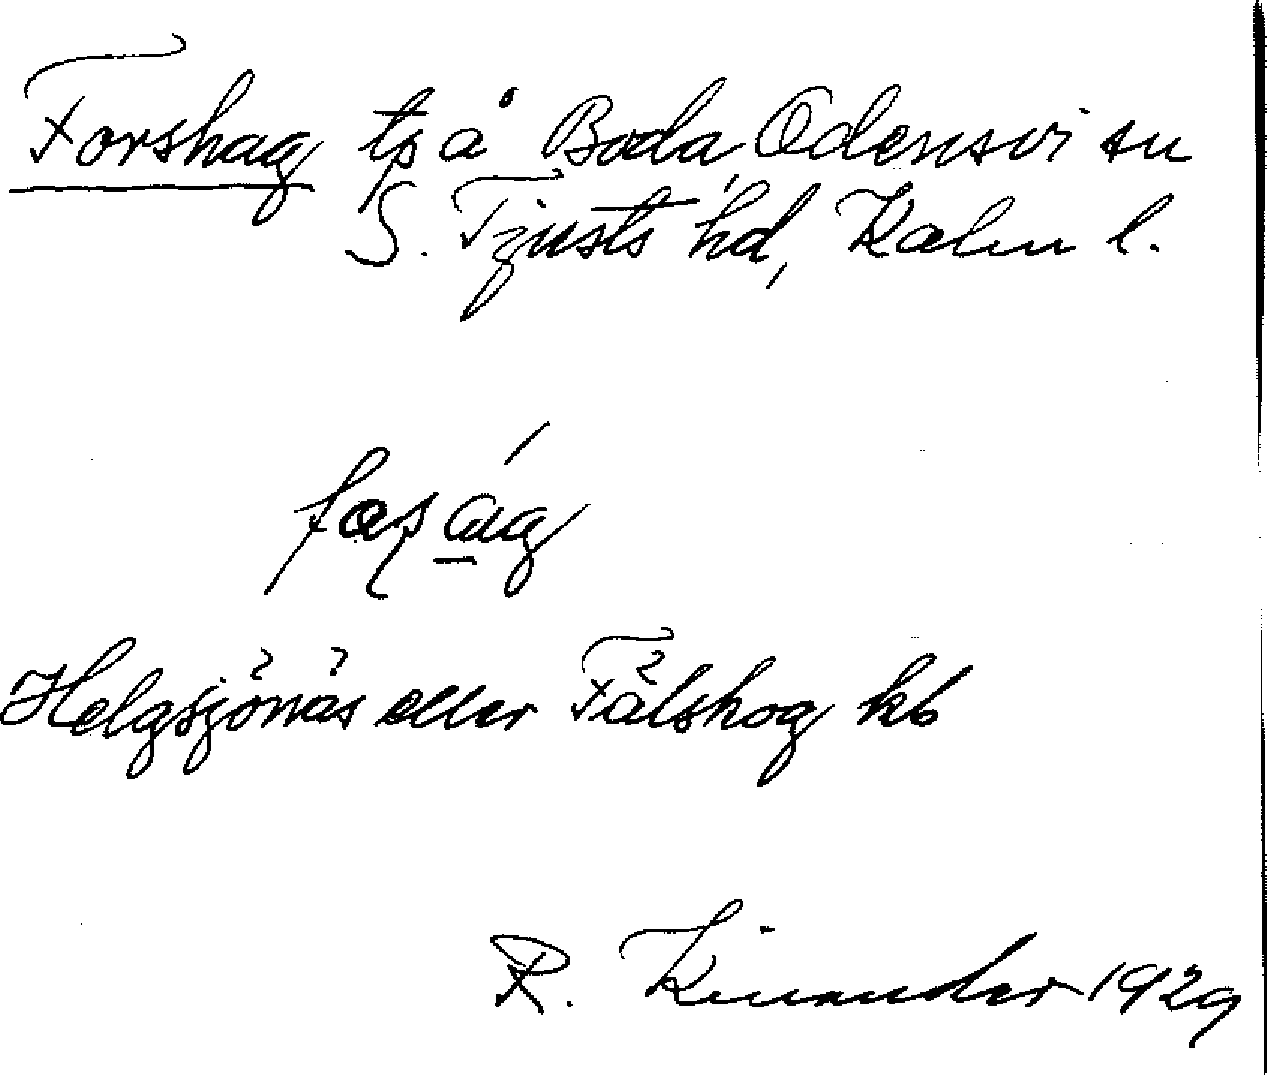 Forshag tp å Boda, Odensvi sn
S. Tjusts hd, Kalm l.
Helgsjönäs eller Fålshog kb
R. Kinander 1929